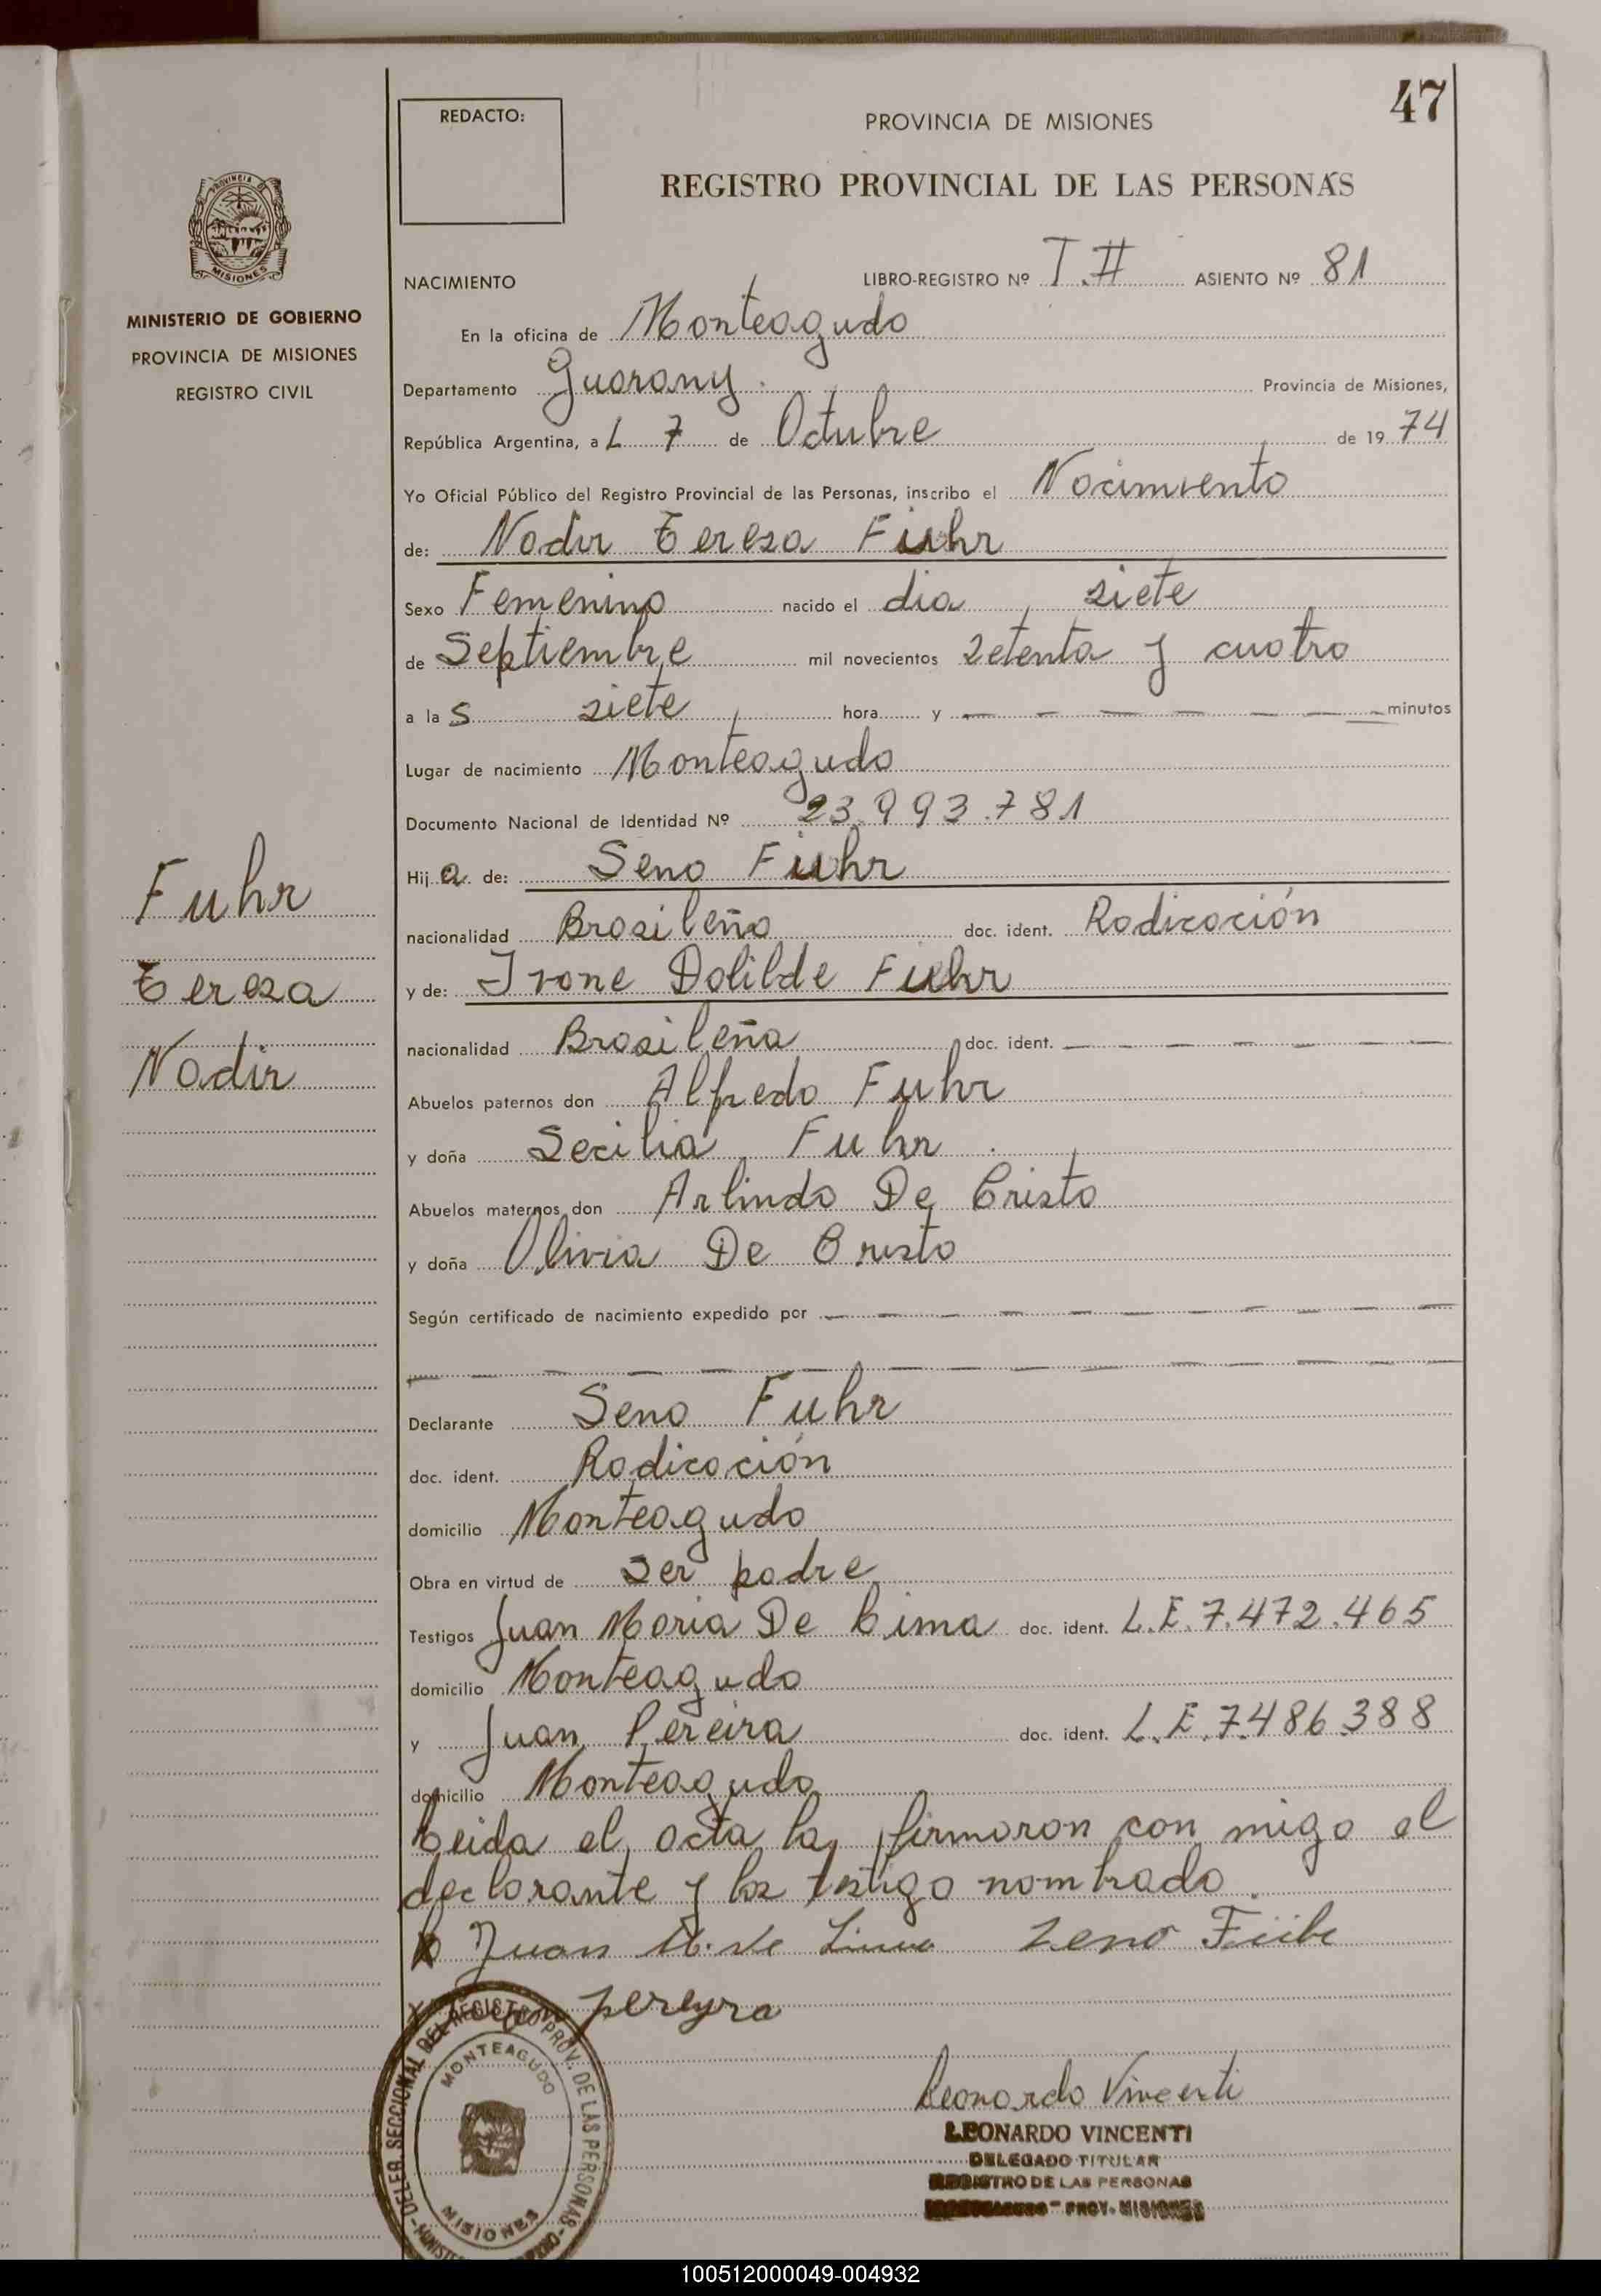 47
REDACTO:
PROVINCIA DE MISIONES
REGISTRO PROVINCIAL DE LAS PERSONAS
PROVINCIA DE
MISIONES
MINISTERIO DE GOBIERNO
PROVINCIA DE MISIONES
REGISTRO CIVIL
NACIMIENTO LIBRO-REGISTRO Nº T.II ASIENTO Nº 81
En la oficina de Monteagudo
Departamento Guarany. Provincia de Misiones,
República Argentina, a L 7 de Octubre de 19 74
Yo Oficial Público del Registro Provincial de las Personas, inscribo el Nacimiento
de: Nadir Tereza Fuhr
Sexo Femenino nacido el dia siete
de Septiembre mil novecientos setenta y cuatro
a la s siete hora y minutos
Lugar de nacimiento Monteagudo
Documento Nacional de Identidad Nº 23.993.781
Hij a de: Seno Fuhr
nacionalidad Brasileño doc. ident. Radicación
y de: Ivone Dolilde Fuhr
nacionalidad Brasileña doc. ident.
Abuelos paternos don Alfredo Fuhr
y doña Secilia Fuhr
Abuelos maternos don Arlindo De Cristo
y doña Olivia De Cristo
Según certificado de nacimiento expedido por
Declarante Seno Fuhr
doc. ident. Radicación
domicilio Monteagudo
Obra en virtud de ser padre
Testigos Juan Maria De Lima doc. ident. L.E. 7.472.465
domicilio Monteagudo
y Juan Pereira doc. ident. L.E. 7.486.388
domicilio Monteagudo
Leida el acta la firmaron con migo el
declarante y los testigo nombrado.
Juan M. de Lima Zeno Führ
pereyra
Fuhr
Tereza
Nadir
DELEG. SECCIONAL DEL REGISTRO PROV. DE LAS PERSONAS
MONTEAGUDO
MISIONES
Leonardo Vincenti
LEONARDO VINCENTI
DELEGADO TITULAR
REGISTRO DE LAS PERSONAS
PROV. MISIONES
100512000049-004932